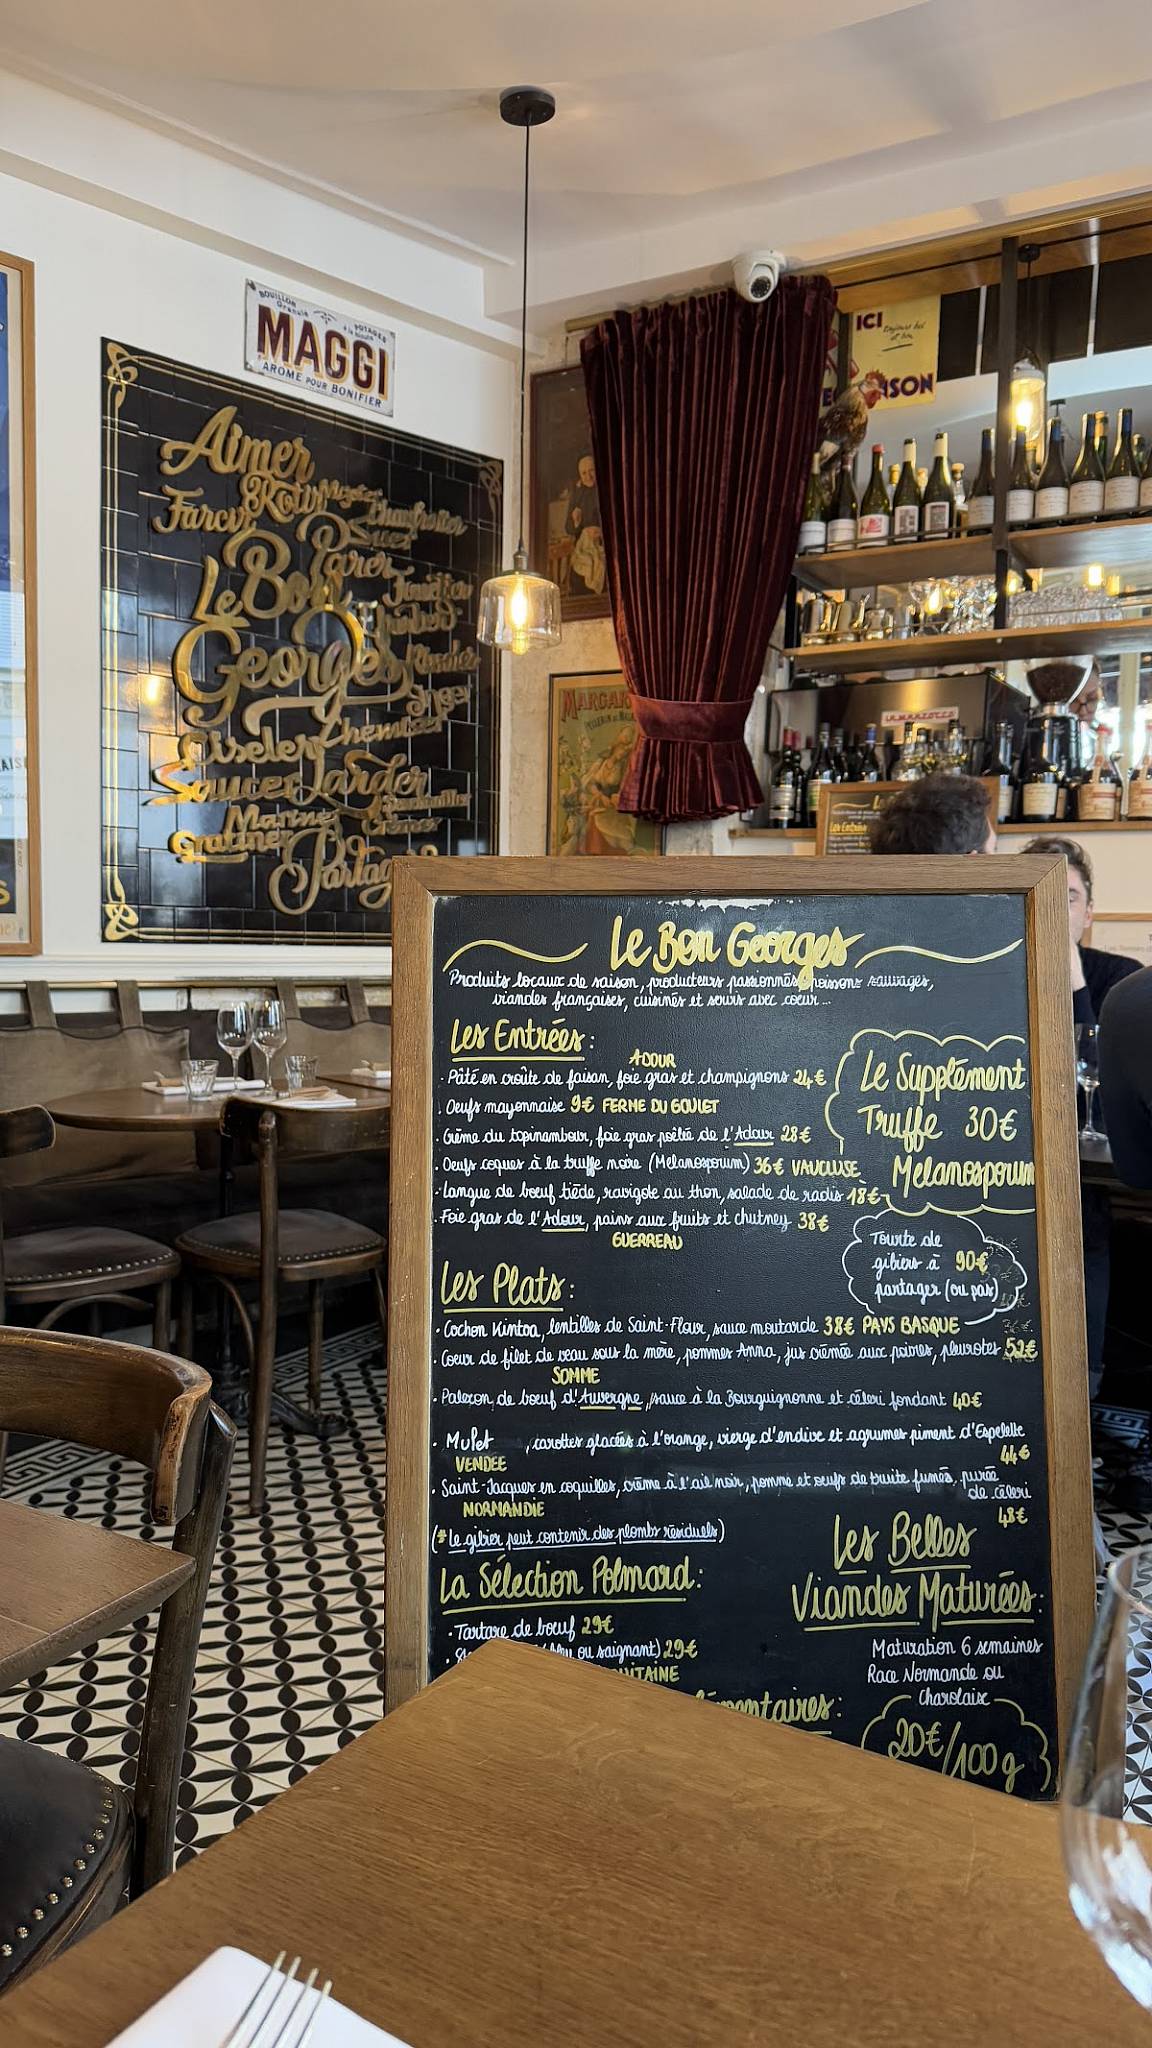 BOUILLON
Granulé
POTAGES
à la Minute
MAGGI
AROME POUR BONIFIER
Aimer
Rôtir
Farcir
Parer
Le Bon
Georges
Ciseler
Chemiser
Saucer
Larder
Mariner
Crémer
Gratiner
Partag
ICI
toujours bel
et bon
NSON
MARGAR
LA MARZOCCO
Les Entrées
Le Bon Georges
Produits locaux de saison, producteurs passionnés, poissons sauvages,
viandes françaises, cuisinés et servis avec coeur...
Les Entrées:
ADOUR
· Pâté en croûte de faisan, foie gras et champignons 24€
· Oeufs mayonnaise 9€ FERME DU GOULET
· Crème du topinambour, foie gras poêlée de l'Adour 28€
· Oeufs coques à la truffe noire (Melanosporum) 36€ VAUCLUSE
· Langue de boeuf tiède, ravigote au thon, salade de radis 18€
· Foie gras de l'Adour, pains aux fruits et chutney 38€
GUERREAU
Le Supplément
Truffe 30€
Melanosporum
Tourte de
gibiers à 90€
partager (ou pas)
Les Plats:
· Cochon Kintoa, lentilles de Saint-Flour, sauce moutarde 38€ PAYS BASQUE
· Coeur de filet de veau sous la mère, pommes Anna, jus crémée aux poivres, pleurotes 52€
SOMME
· Paleron de boeuf d'Auvergne, sauce à la Bourguignonne et céleri fondant 40€
· Mulet , carottes glacées à l'orange, vierge d'endive et agrumes piment d'Espelette
VENDEE 44€
· Saint-Jacques en coquilles, crème à l'ail noir, pomme et oeufs de truite fumés, purée
de céleri
NORMANDIE 48€
(* Le gibier peut contenir des plombs résiduels)
La Sélection Polmard:
· Tartare de boeuf 29€
ou saignant) 29€
UITAINE
mentaires:
Les Belles
Viandes Maturées:
Maturation 6 semaines
Race Normande ou
Charolaise
20€/100g